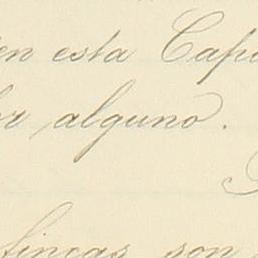 en esta Capi
or alguno.
fincas son